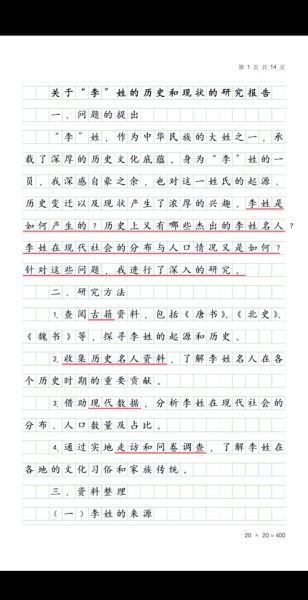 第 1 页 共 14 页
关于“李”姓的历史和现状的研究报告
一、问题的提出
“李”姓，作为中华民族的大姓之一，承
载了深厚的历史文化底蕴。身为“李”姓的一
员，我深感自豪之余，也对这一姓氏的起源、
历史变迁以及现状产生了浓厚的兴趣。李姓是
如何产生的？历史上又有哪些杰出的李姓名人？
李姓在现代社会的分布与人口情况又是如何？
针对这些问题，我进行了深入的研究。
二、研究方法
1. 查阅古籍资料，包括《唐书》、《北史》、
《魏书》等，探寻李姓的起源和历史。
2. 收集历史名人资料，了解李姓名人在各
个历史时期的重要贡献。
3. 借助现代数据，分析李姓在现代社会的
分布、人口数量及占比。
4. 通过实地走访和问卷调查，了解李姓在
各地的文化习俗和家族传统。
三、资料整理
（一）李姓的来源
20 × 20 = 400